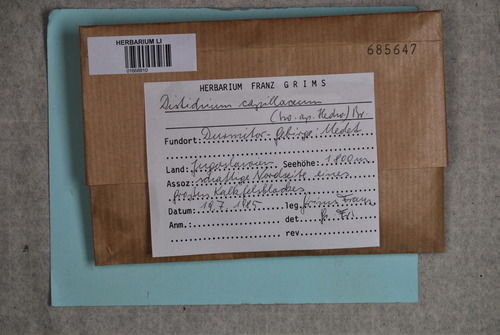 HERBARIUM LI
01668810
685647
HERBARIUM FRANZ GRIMS
Distichium capillaceum
(Sw. ap. Hedw.) Br.
Fundort: Durmitor-Gebirge: Medet
Land: Jugoslavien Seehöhe: 1.800m
Assoz: schattige Nordseite eines
großen Kalkfelsblockes
Datum: 19.7.1985 leg. Grims Franz
Anm.: det. Gr. Fr.
rev.